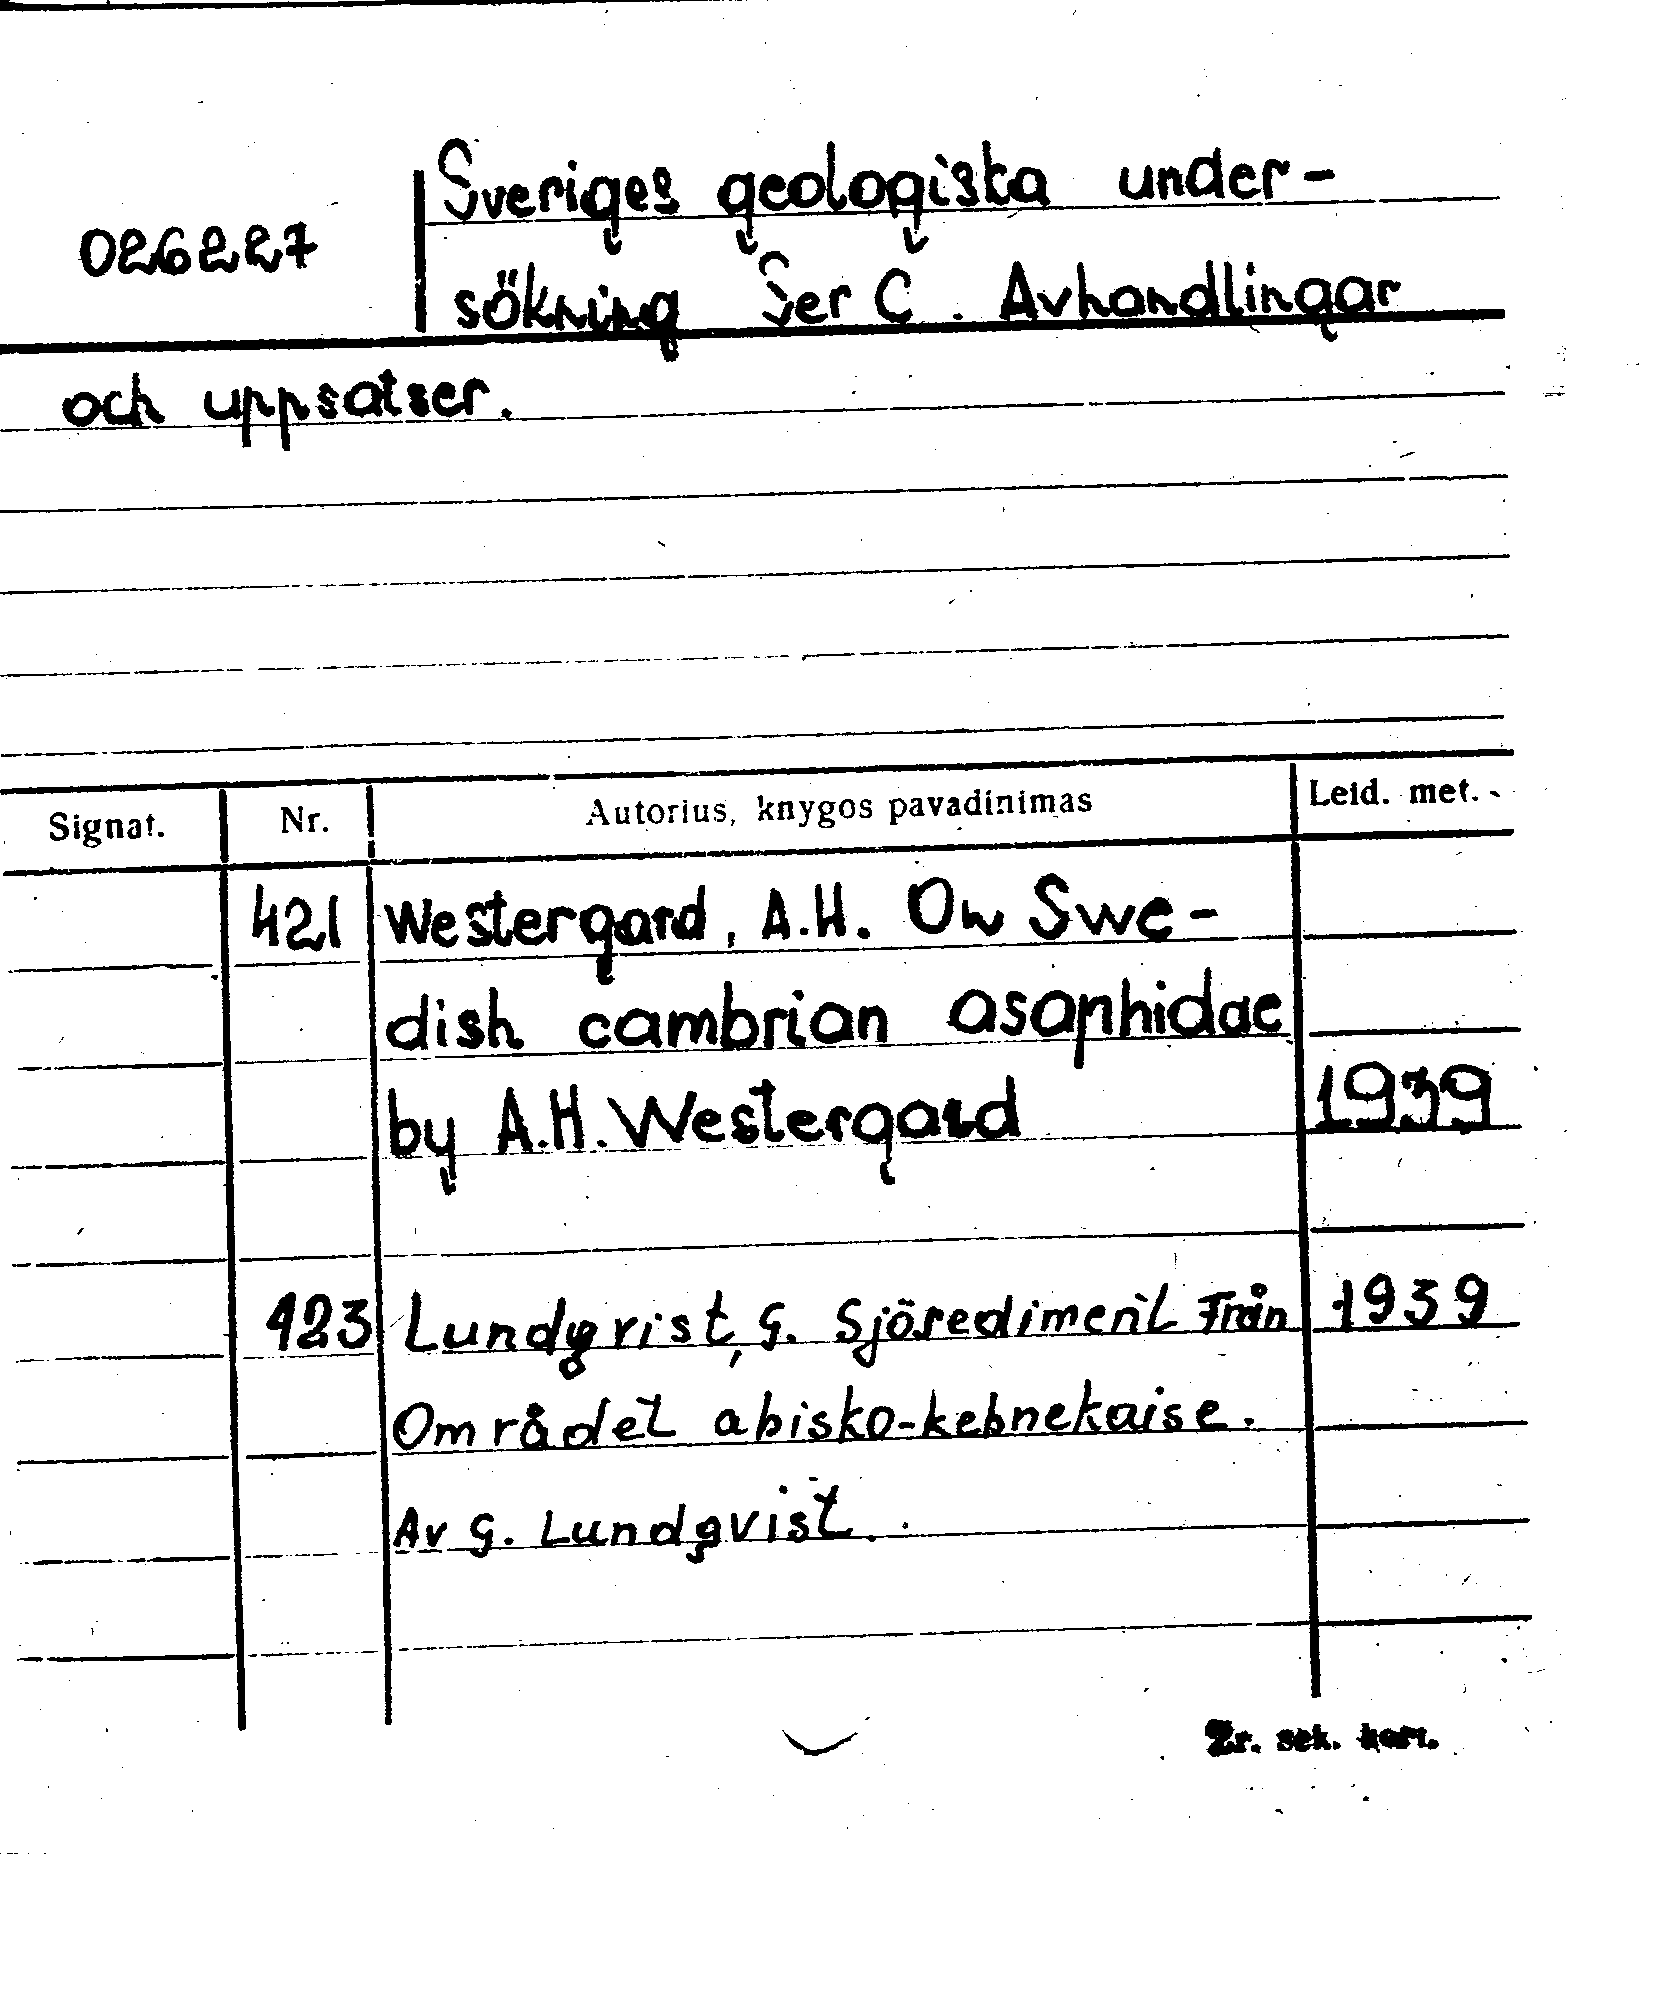 Sveriges geologiska under-
026227
sökning Ser C. Avhandlingar
och uppsatser.
Signat. Nr. Autorius, knygos pavadinimas Leid. met.
421 Westergard, A.H. On Swe-
dish cambrian asaphidae
by A.H. Westergard 1939
423 Lundqvist, G. Sjösediment Från 1939
Området abisko-kebnekaise.
Av G. Lundqvist.
Žr. sek. kort.